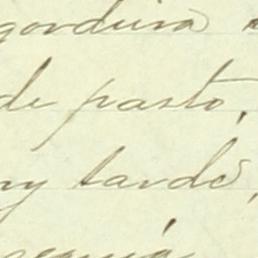 gordura
de pasto,
ny tarde,